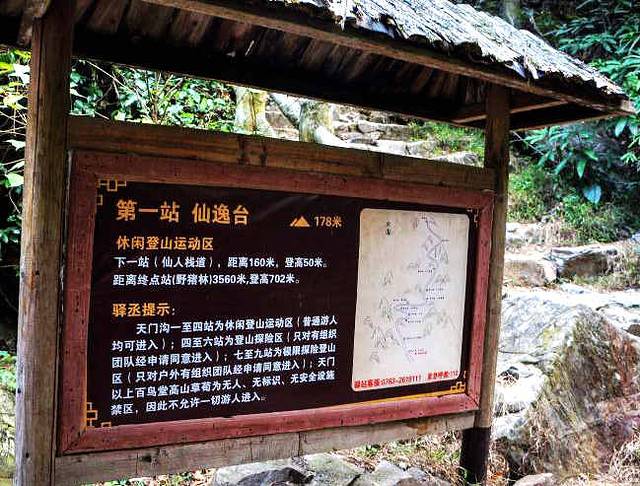 第一站 仙逸台
178米
休闲登山运动区
下一站（仙人栈道），距离160米，登高50米。
距离终点站(野猪林)3560米,登高702米。
驿丞提示：
天门沟一至四站为休闲登山运动区（普通游人
均可进入）；四至六站为登山探险区（只对有组织
团队经申请同意进入）；七至九站为极限探险登山
区（只对户外有组织团队经申请同意进入）；天门
以上百鸟堂高山草甸为无人、无标识、无安全设施
禁区，因此不允许一切游人进入。